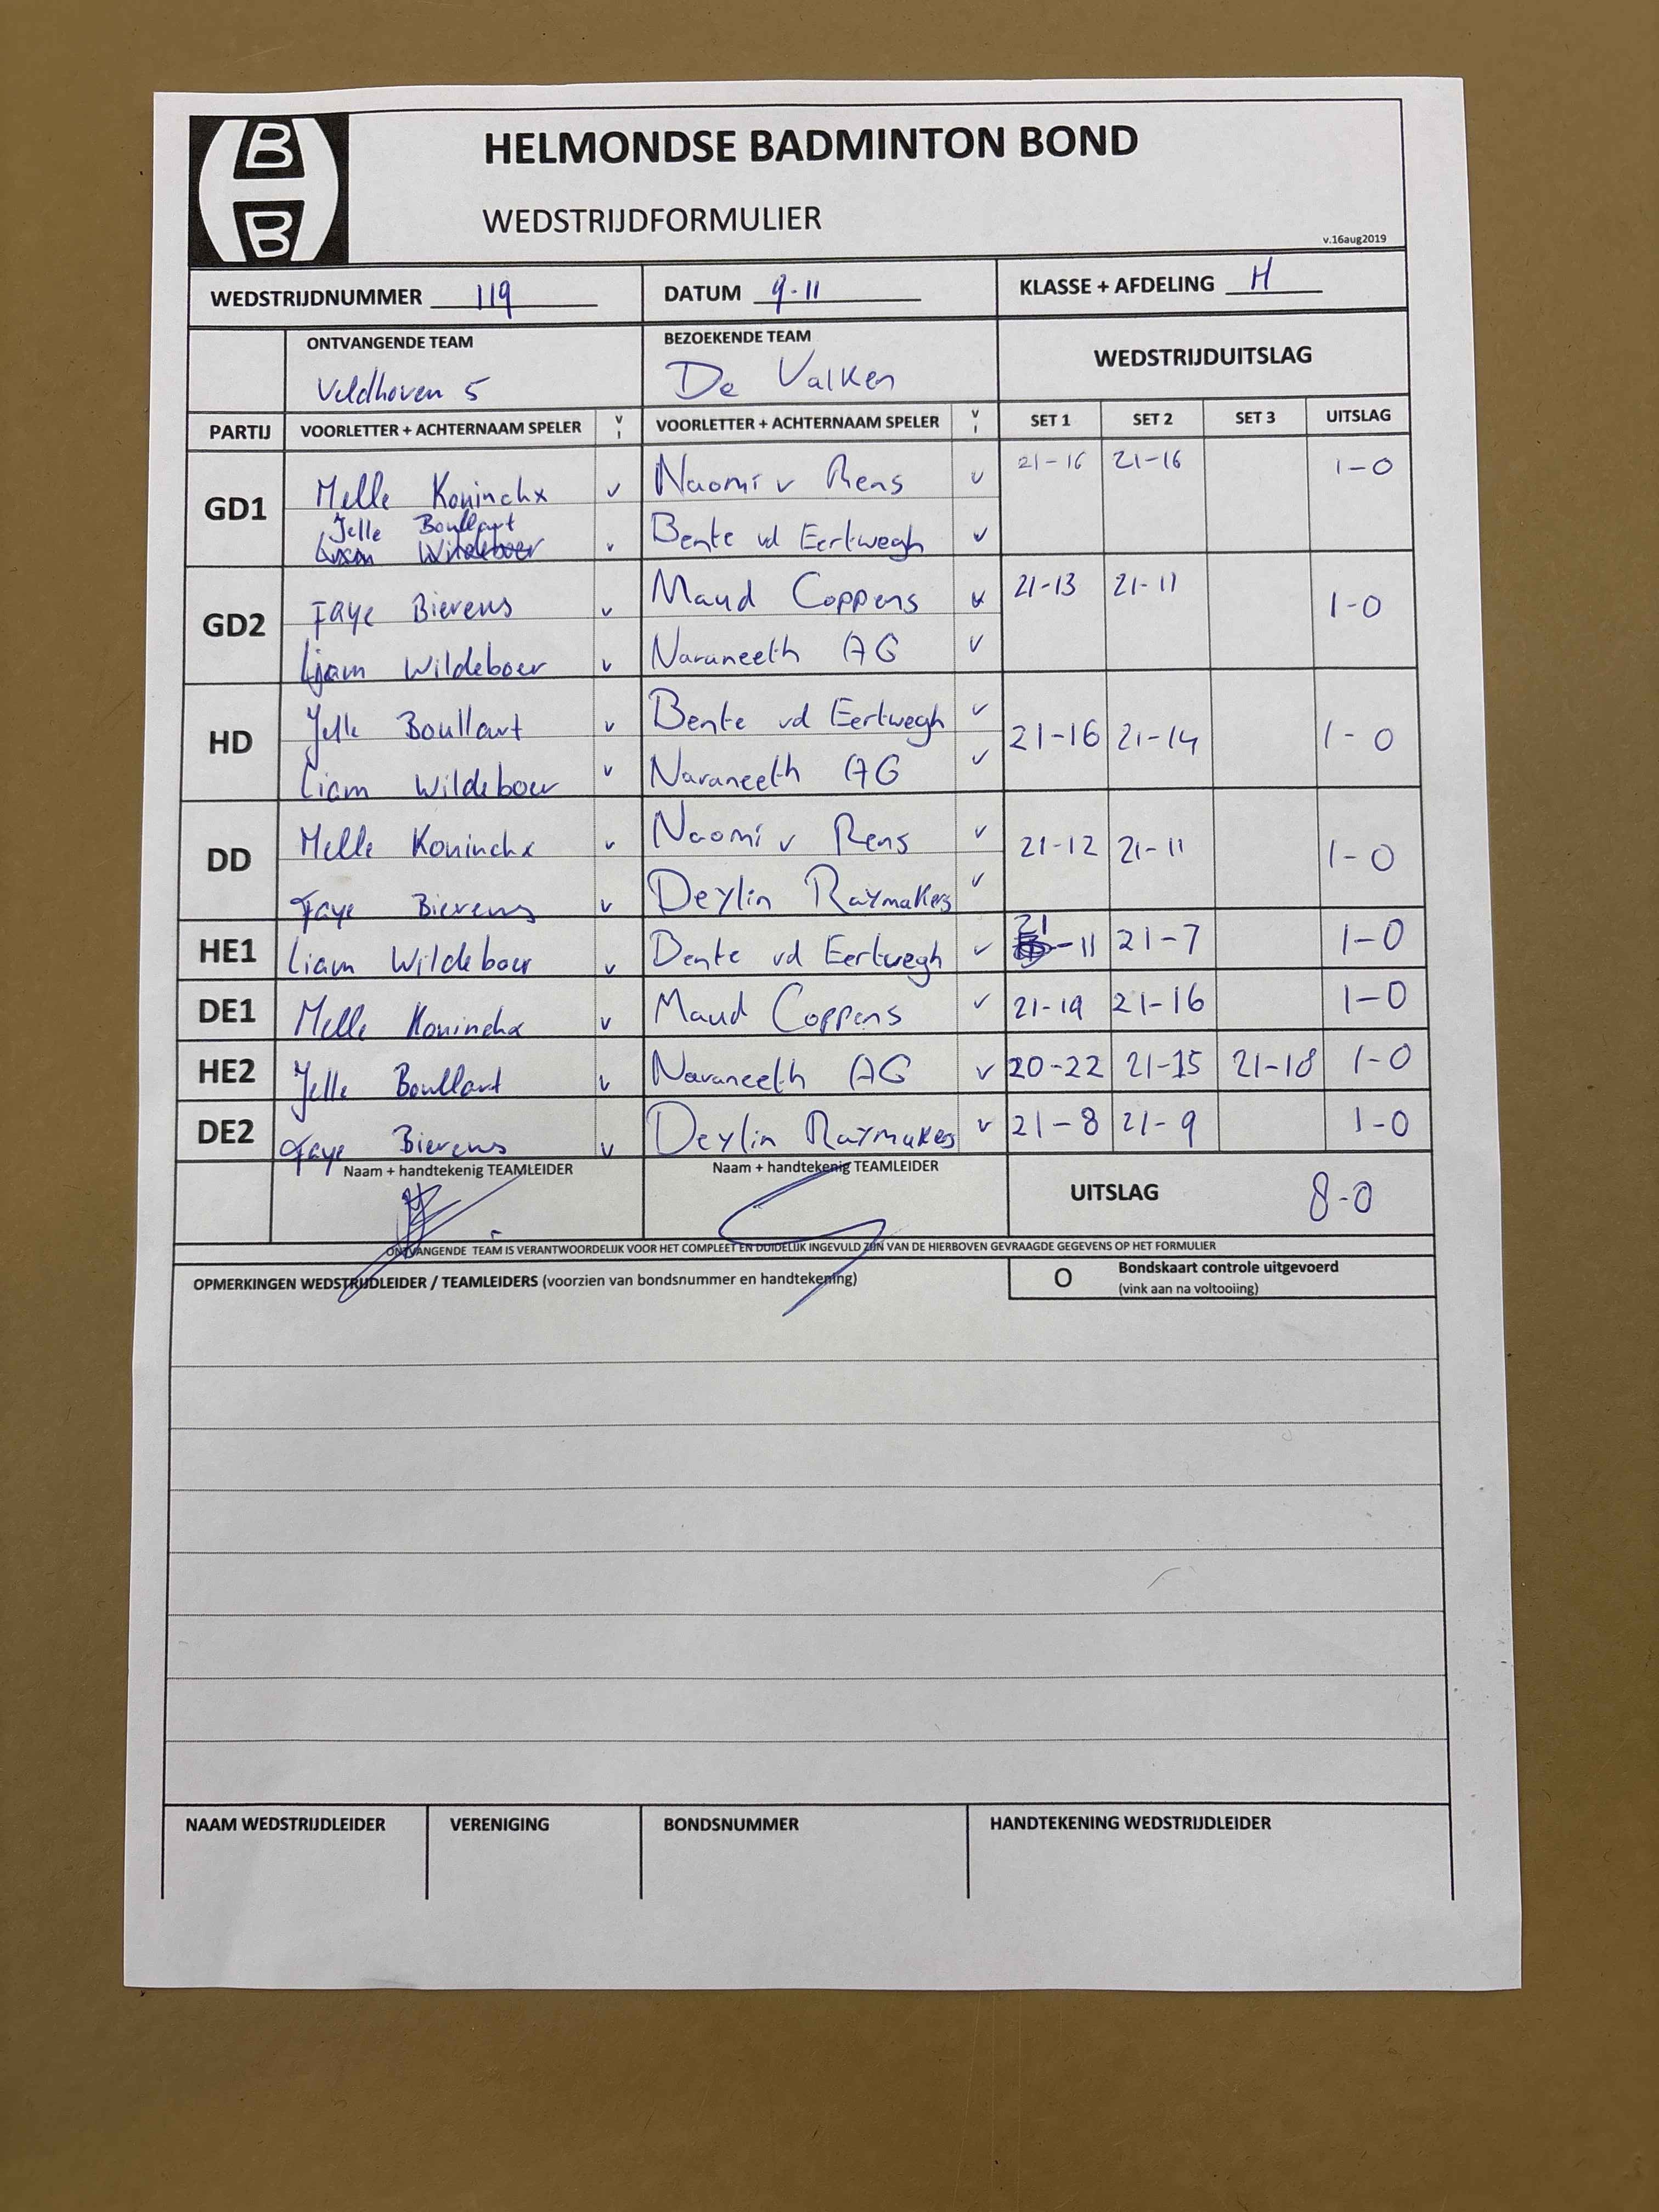 B
B
HELMONDSE BADMINTON BOND
WEDSTRIJDFORMULIER
v.16aug2019
WEDSTRIJDNUMMER 119 DATUM 9-11 KLASSE + AFDELING H
ONTVANGENDE TEAM BEZOEKENDE TEAM WEDSTRIJDUITSLAG
Veldhoven 5 De Valken
PARTIJ VOORLETTER + ACHTERNAAM SPELER V I VOORLETTER + ACHTERNAAM SPELER V I SET 1 SET 2 SET 3 UITSLAG
GD1 Melle Koninckx v Naomi v Rens v 21-16 21-16 1-0
Jelle Boullart
Liam Wildeboer v Bente vd Eertwegh v
GD2 Faye Bierens v Maud Coppens v 21-13 21-11 1-0
Liam Wildeboer v Naraneeth AG v
HD Jelle Boullart v Bente vd Eertwegh v 21-16 21-14 1-0
Liam Wildeboer v Naraneeth AG v
DD Melle Koninckx v Naomi v Rens v 21-12 21-11 1-0
Faye Bierens v Deylin Raymakers v
HE1 Liam Wildeboer v Bente vd Eertwegh v 21-11 21-7 1-0
DE1 Melle Koninckx v Maud Coppens v 21-19 21-16 1-0
HE2 Jelle Boullart v Naraneeth AG v 20-22 21-15 21-18 1-0
DE2 Faye Bierens v Deylin Raymakers v 21-8 21-9 1-0
Naam + handtekenig TEAMLEIDER Naam + handtekenig TEAMLEIDER
UITSLAG 8-0
ONTVANGENDE TEAM IS VERANTWOORDELIJK VOOR HET COMPLEET EN DUIDELIJK INGEVULD ZIJN VAN DE HIERBOVEN GEVRAAGDE GEGEVENS OP HET FORMULIER
OPMERKINGEN WEDSTRIJDLEIDER / TEAMLEIDERS (voorzien van bondsnummer en handtekening) O Bondskaart controle uitgevoerd
(vink aan na voltooiing)
NAAM WEDSTRIJDLEIDER VERENIGING BONDSNUMMER HANDTEKENING WEDSTRIJDLEIDER